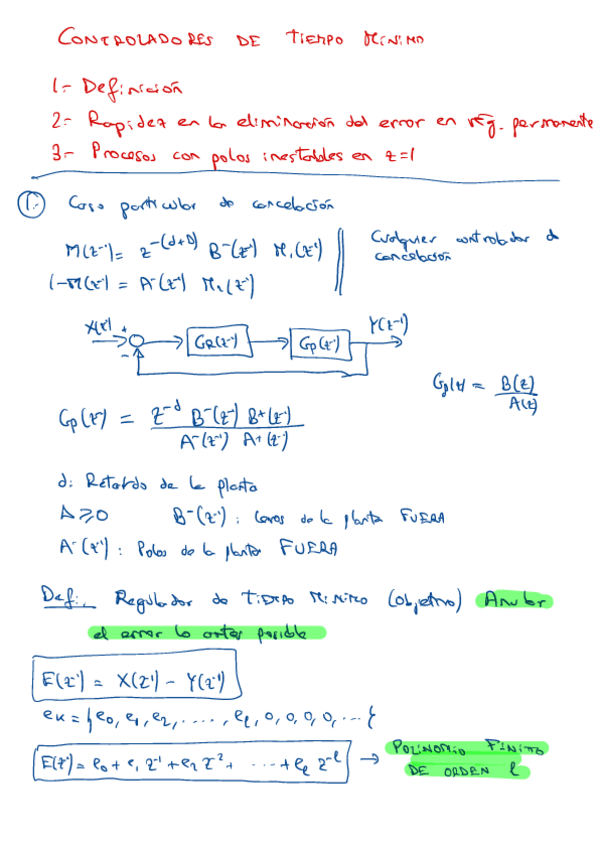 CONTROLADORES DE TIEMPO MÍNIMO
1- Definición
2- Rapidez en la eliminación del error en rég. permanente
3- Procesos con polos inestables en z=1
1. Caso particular de cancelación
M(z⁻¹) = z^-(d+Δ) B⁻(z⁻¹) M₁(z⁻¹)
Cualquier controlador de cancelación
1-M(z⁻¹) = A⁻(z⁻¹) M₂(z⁻¹)
X(z⁻¹) + - GR(z⁻¹) Gp(z⁻¹) Y(z⁻¹)
Gp(z) = B(z) / A(z)
Gp(z⁻¹) = z^-d B⁻(z⁻¹) B+(z⁻¹) / A⁻(z⁻¹) A+(z⁻¹)
d: Retardo de la planta
Δ ≥ 0 B⁻(z⁻¹): Ceros de la planta FUERA
A⁻(z⁻¹): Polos de la planta FUERA
Def:. Regulador de TIEMPO MINIMO (objetivo) Anular
el error lo antes posible
E(z⁻¹) = X(z⁻¹) - Y(z⁻¹)
eκ = {e₀, e₁, e₂, ....., eℓ, 0, 0, 0, 0, ...}
E(z⁻¹) = e₀ + e₁ z⁻¹ + e₂ z⁻² + ..... + eℓ z^-ℓ → POLINOMIO FINITO
DE ORDEN ℓ